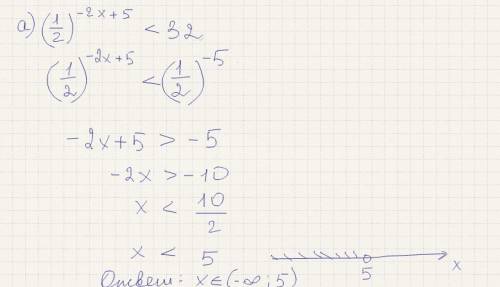 а) (1/2)^(-2x+5) < 32
(1/2)^(-2x+5) < (1/2)^(-5)
-2x+5 > -5
-2x > -10
x < 10/2
x < 5
5 x
Ответ: x∈(-∞; 5)